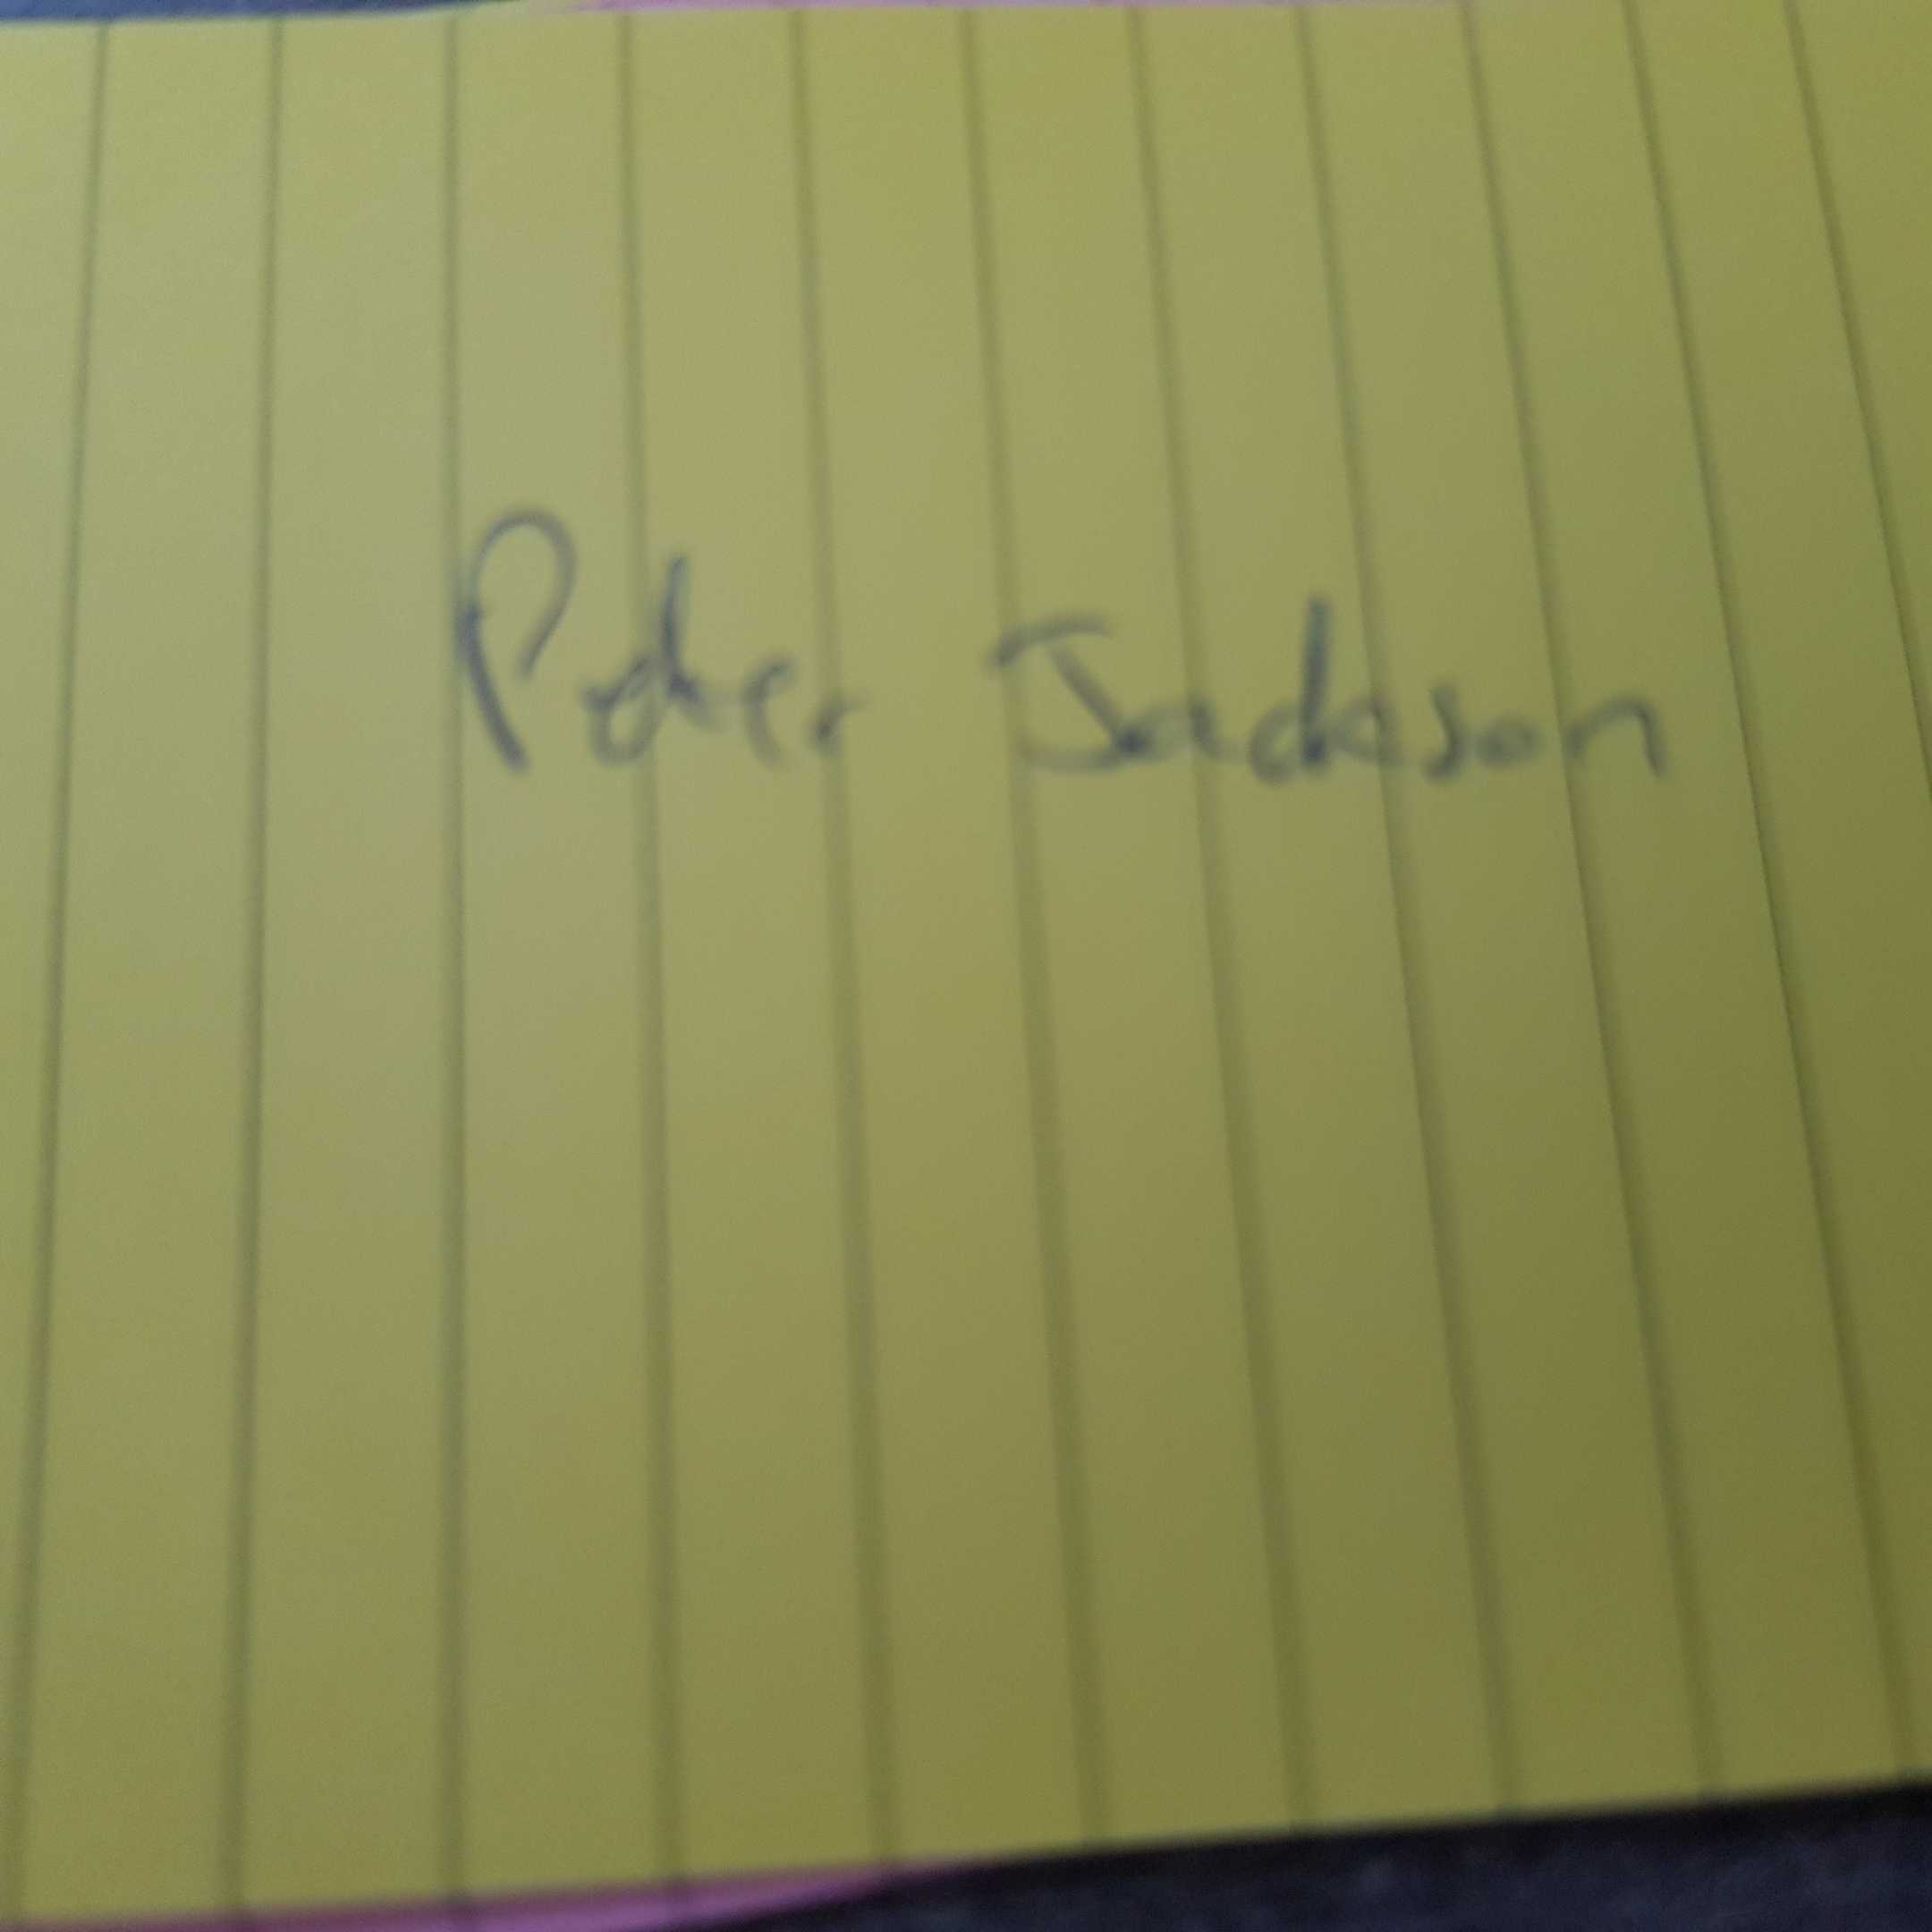 Peter Jackson